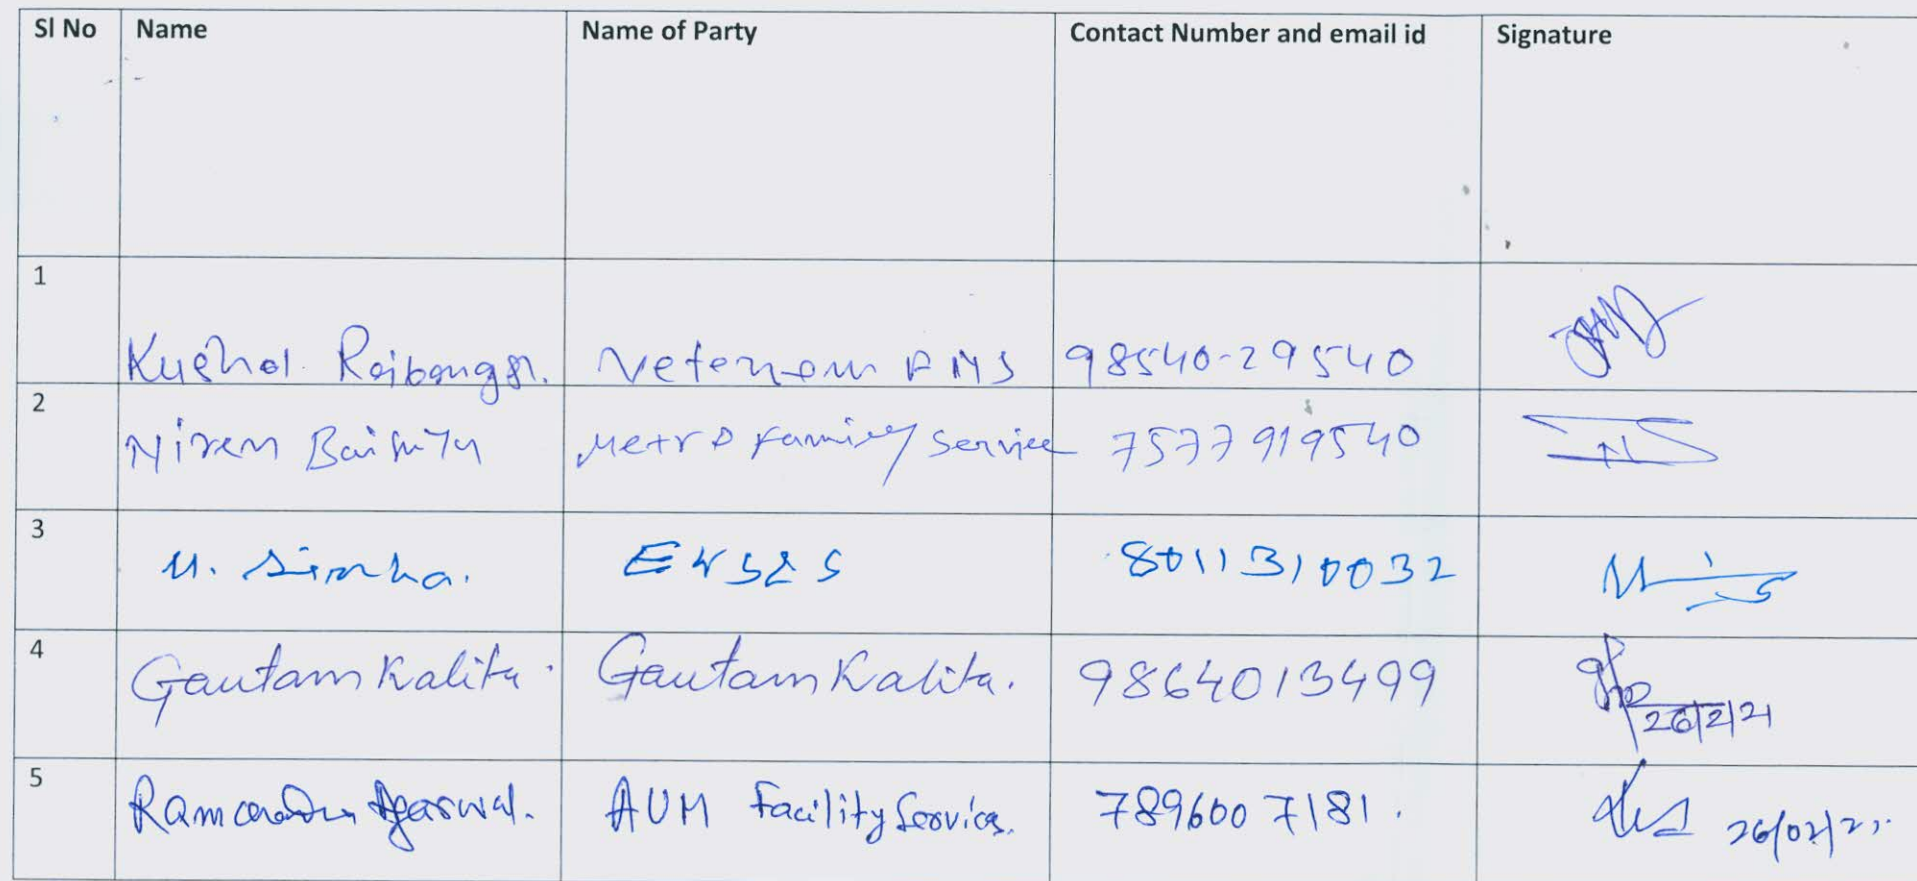 Sl No Name Name of Party Contact Number and email id Signature
1
Kushal Rajbongsi. Veteran FMS 98540-29540
2
Niren Baishya Metro Family Service 7577919540
3
M. Sinha. 8011310032
4
Gautam Kalita. Gautam Kalita. 9864013499
26/2/21
5
Agarwal. AUM Facility Services. 7896007181.
26/02/21